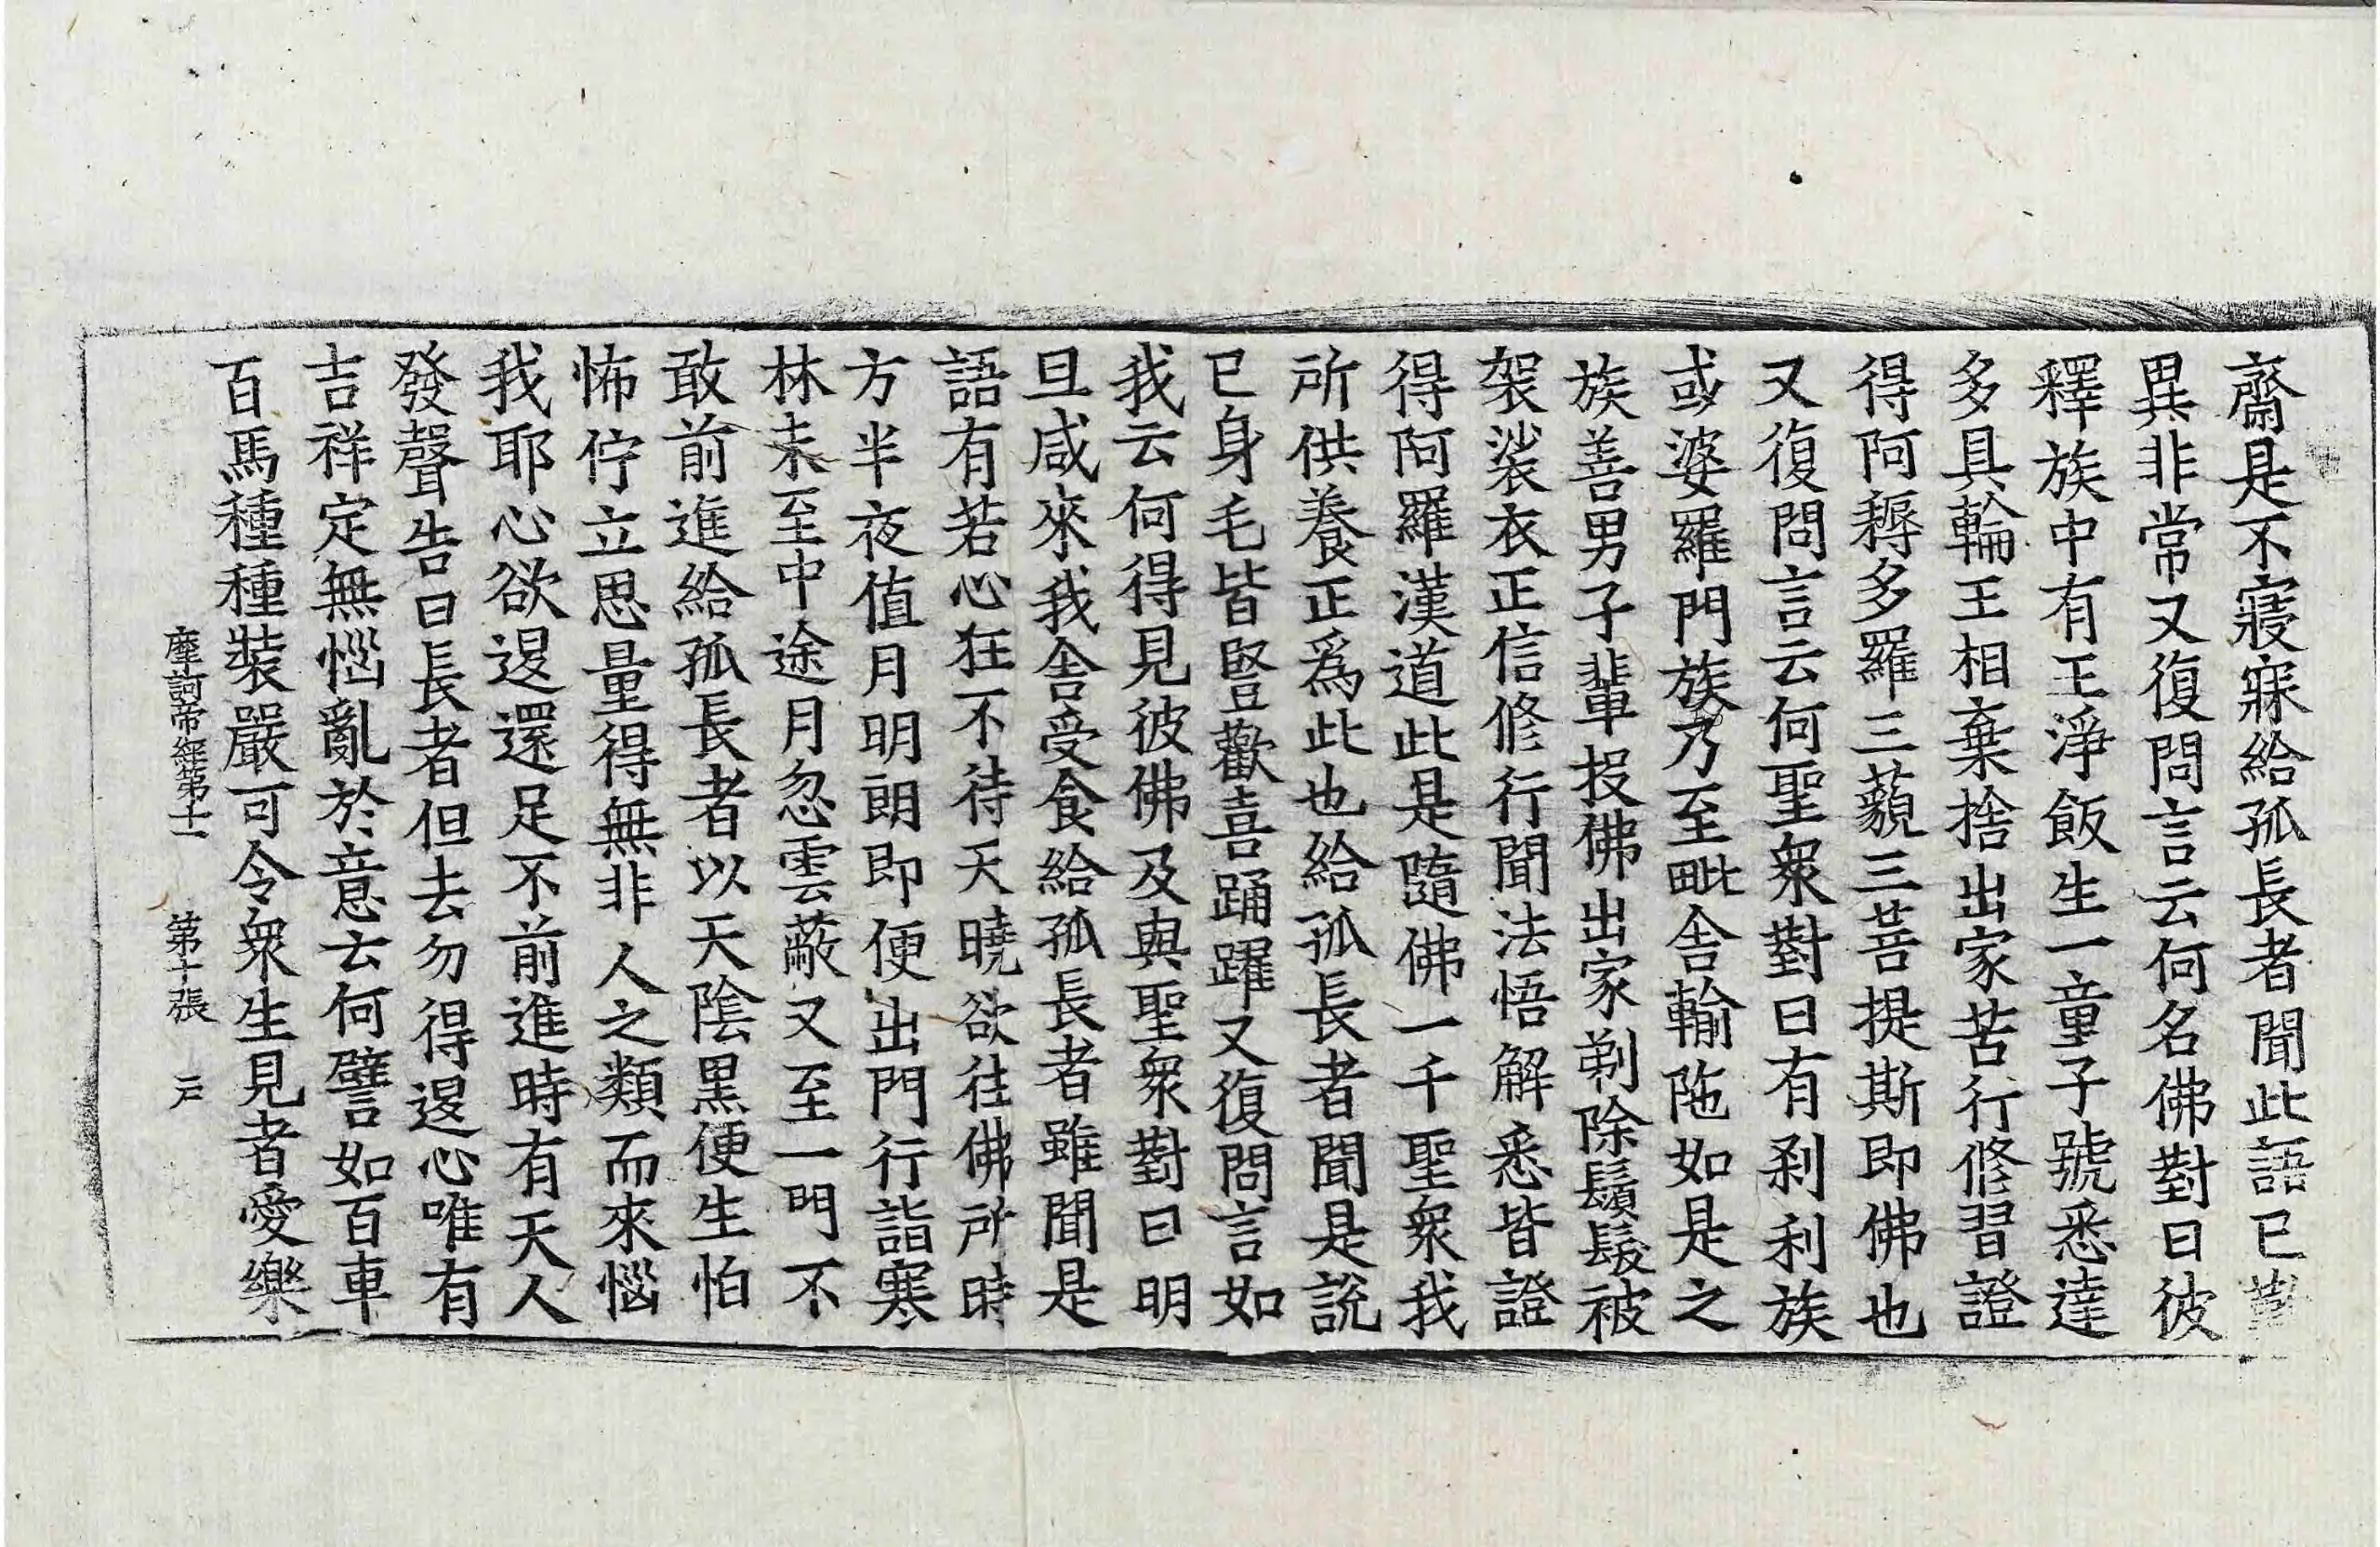 齋是不寢寐給孤長者聞此語已歎
異非常又復問言云何名佛對曰彼
釋族中有王淨飯生一童子號悉達
多具輪王相棄捨出家苦行修習證
得阿耨多羅三藐三菩提斯即佛也
又復問言云何聖衆對曰有刹利族
或婆羅門族乃至毗舍輸陁如是之
族善男子輩投佛出家剃除鬚髮被
袈裟衣正信修行聞法悟解悉皆證
得阿羅漢道此是隨佛一千聖衆我
所供養正爲此也給孤長者聞是說
已身毛皆豎歡喜踊躍又復問言如
我云何得見彼佛及與聖衆對曰明
旦咸來我舍受食給孤長者雖聞是
語有若心狂不待天曉欲往佛所時
方半夜值月明朗即便出門行詣寒
林未至中途月忽雲蔽又至一門不
敢前進給孤長者以天陰黑便生怕
怖佇立思量得無非人之類而來惱
我耶心欲退還足不前進時有天人
發聲告曰長者但去勿得退心唯有
吉祥定無惱亂於意云何譬如百車
百馬種種裝嚴可令衆生見者愛樂
摩訶帝經第十二 第十張 戶